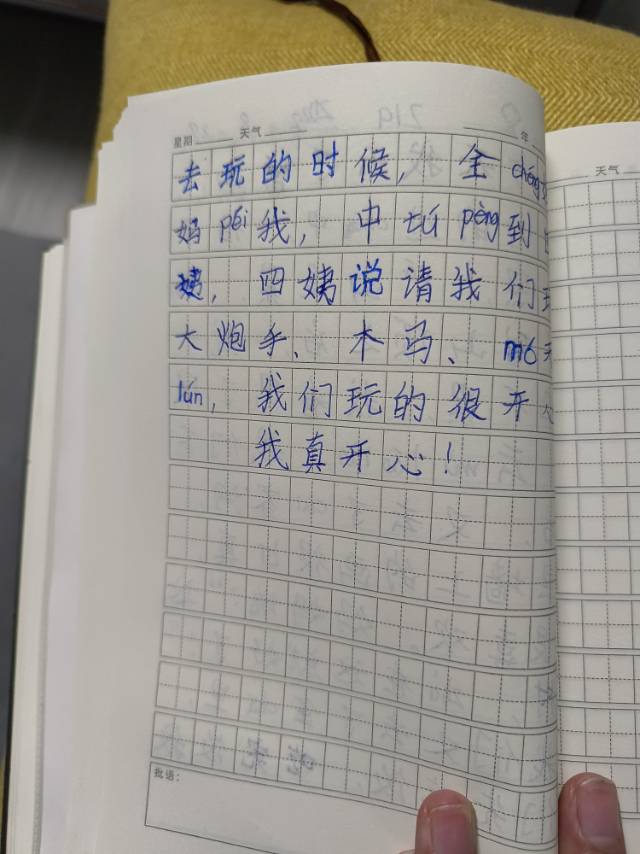 星期 天气 年
去玩的时候，全chéng
妈péi我，中tú pèng到
姨，四姨说请我们
大炮手、木马、mó天
lún，我们玩的很开心
我真开心！
批语：
天气